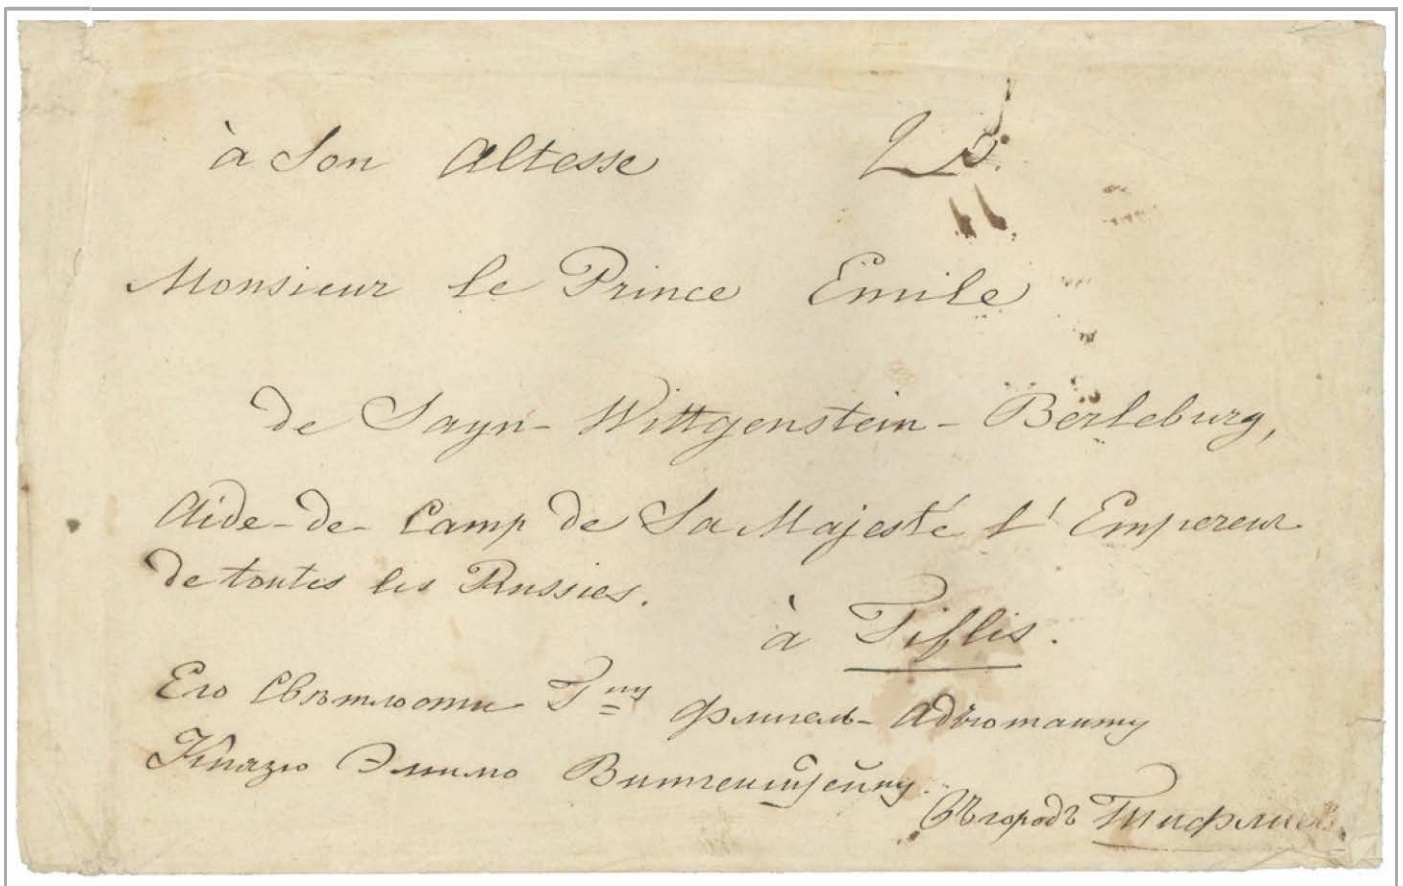 à Son Altesse
Monsieur le Prince Emile
de Sayn-Wittgenstein-Berleburg,
Aide-de-Camp de Sa Majesté l'Empereur
de toutes les Russies.
à Tiflis.
Его Свѣтлости Гну Флигель-Адъютанту
Князю Эмилю Витгенштейну.
Въ городъ Тифлисъ